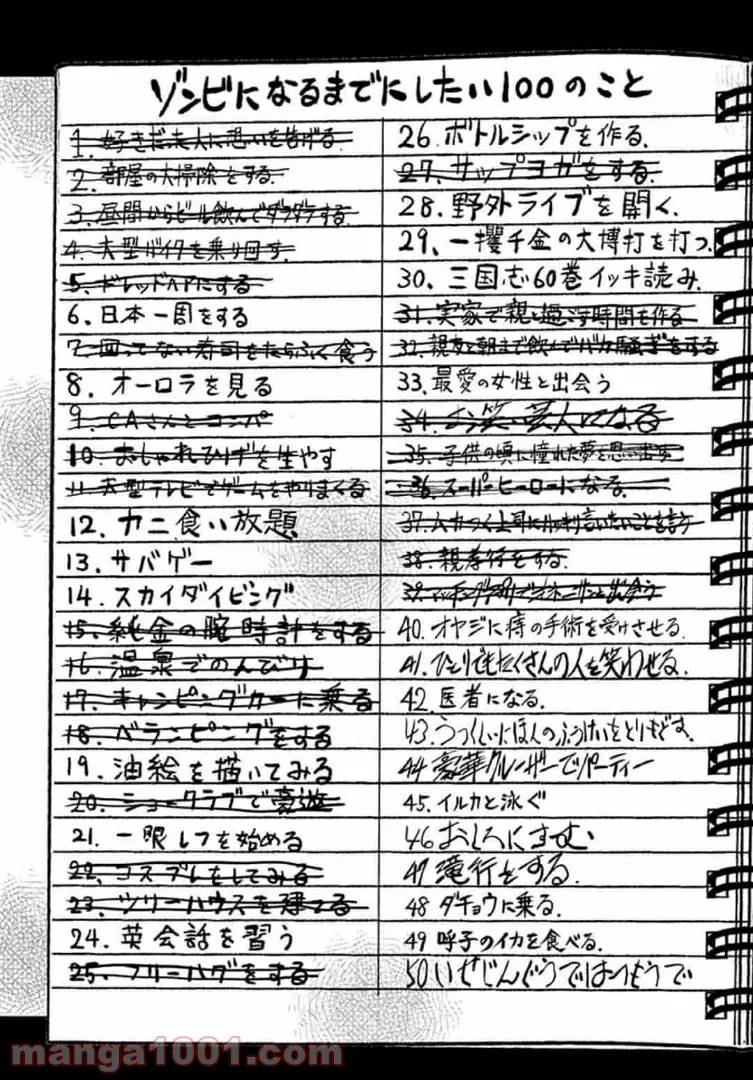 ゾンビになるまでにしたい100のこと
1. 好きだった人に想いを告げる
2. 部屋の大掃除をする.
3. 昼間からビール飲んでダラダラする
4. 大型バイクを乗り回す.
5. ドレッドヘアにする
6. 日本一周をする
7. 回ってない寿司をたらふく食う
8. オーロラを見る
9. CAさんとコンパ
10. おしゃれひげを生やす
11. 大型テレビでゲームをやりまくる
12. カニ食い放題
13. サバゲー
14. スカイダイビング
15. 純金の腕時計をする
16. 温泉でのんびり
17. キャンピングカーに乗る
18. ベランピングをする
19. 油絵を描いてみる
20. ショークラブで豪遊
21. 一眼レフを始める
22. コスプレをしてみる
23. ツリーハウスを建てる
24. 英会話を習う
25. フリーハグをする
26. ボトルシップを作る.
27. サップヨガをする.
28. 野外ライブを開く.
29. 一攫千金の大博打を打つ.
30. 三国志60巻イッキ読み.
31. 実家で親と過ごす時間を作る
32. 親友と朝まで飲んでバカ騒ぎをする
33. 最愛の女性と出会う
34. お笑い芸人になる
35. 子供の頃に憧れた夢を思い出す
36. スーパーヒーローになる.
37. ムカつく上司にハッキリ言いたいことを言う
38. 親孝行をする.
39. マッチングアプリで
40. オヤジに痔の手術を受けさせる.
41. ひとりでもたくさんの人を笑わせる.
42. 医者になる.
43. うつくしいにほんのふうけいをとりもどす.
44 豪華クルーザーでパーティー
45. イルカと泳ぐ
46 おしろにすむ
47 滝行をする.
48 ダチョウに乗る.
49 呼子のイカを食べる.
50 いせじんぐうではつもうで
manga1001.com